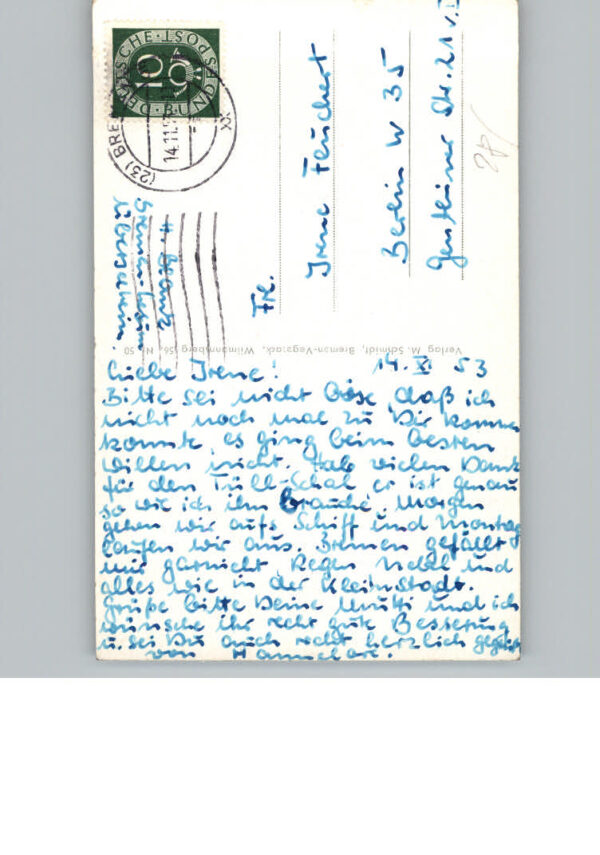 DEUTSCHE BUNDESPOST
10
(23) BRE
14.11.5
Frl.
Irene Feuchert
Berlin W 35
Str. 21 v.I
H.
Verlag M. Schmidt, Bremen-Vegesack, Wilmannsberg Nr. 50
Liebe Irene! 14. XI 53
Bitte sei nicht böse daß ich
nicht noch mal zu Dir kommen
konnte, es ging beim besten
Willen nicht. Hab vielen Dank
für den Tüll-Schal er ist genau
so wie ich ihn brauche, Morgen
gehen wir aufs Schiff und Montag
laufen wir aus. Bremen gefällt
mir garnicht, Regen Nebel und
alles wie in der Kleinstadt.
Grüße bitte Deine Mutti und ich
wünsche ihr recht gute Besserung
u. sei Du auch recht herzlich gegrüßt
von Hannelore.